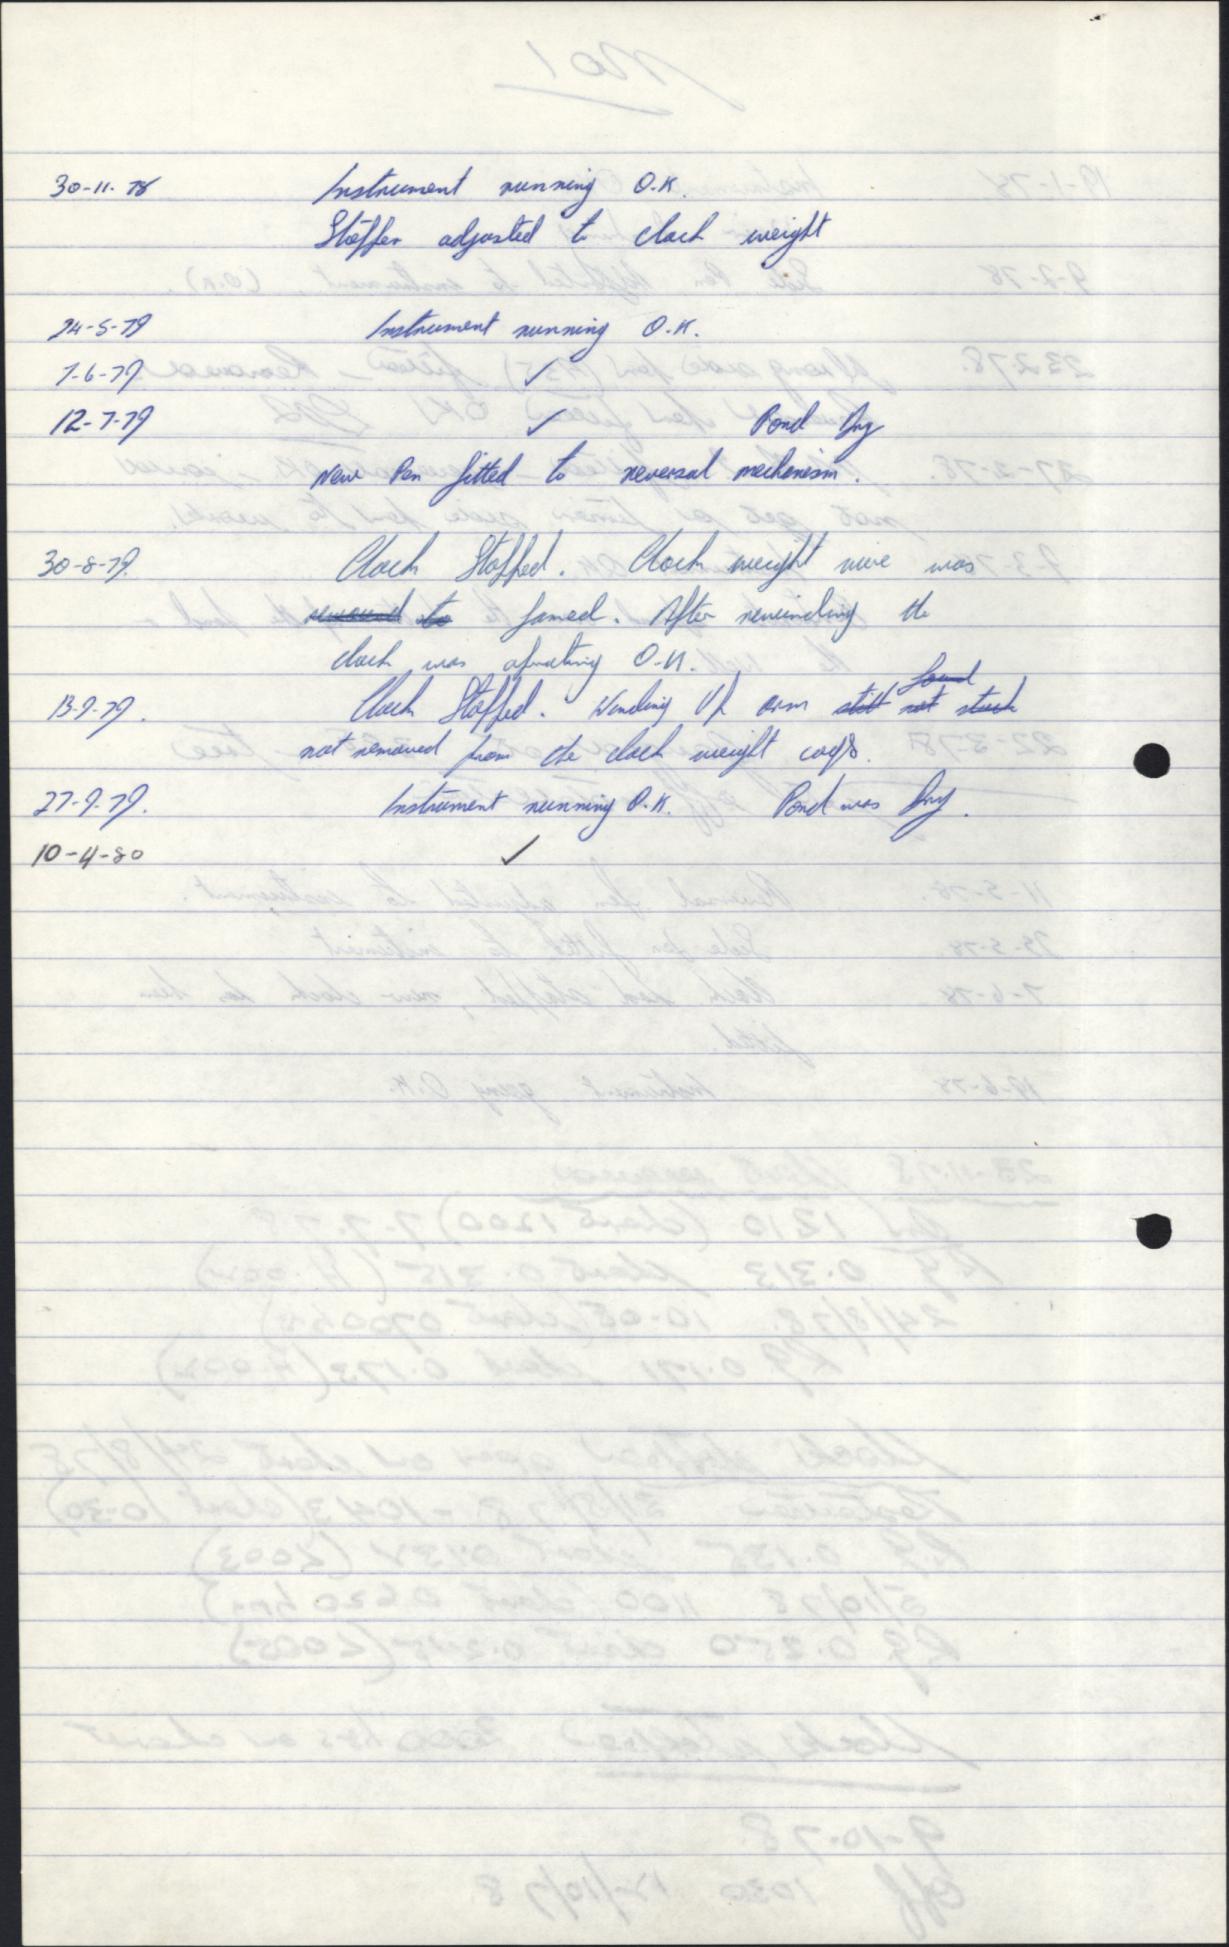 30-11-78 Instrument running O.K.
Stopper adjusted to clock weight
24-5-79 Instrument running O.K.
7-6-79 ✓
12-7-79 ✓ Pond Dry
New Pen fitted to reversal mechanism.
30-8-79. Clock Stopped. Clock weight wire was
removed to jamed. After rewinding the
clock was operating O.K.
found
13-9-79. Clock Stopped. Winding Up arm still not stuck
not removed from the clock weight cogs.
27-9-79. Instrument running O.K. Pond was Dry.
10-4-80 ✓